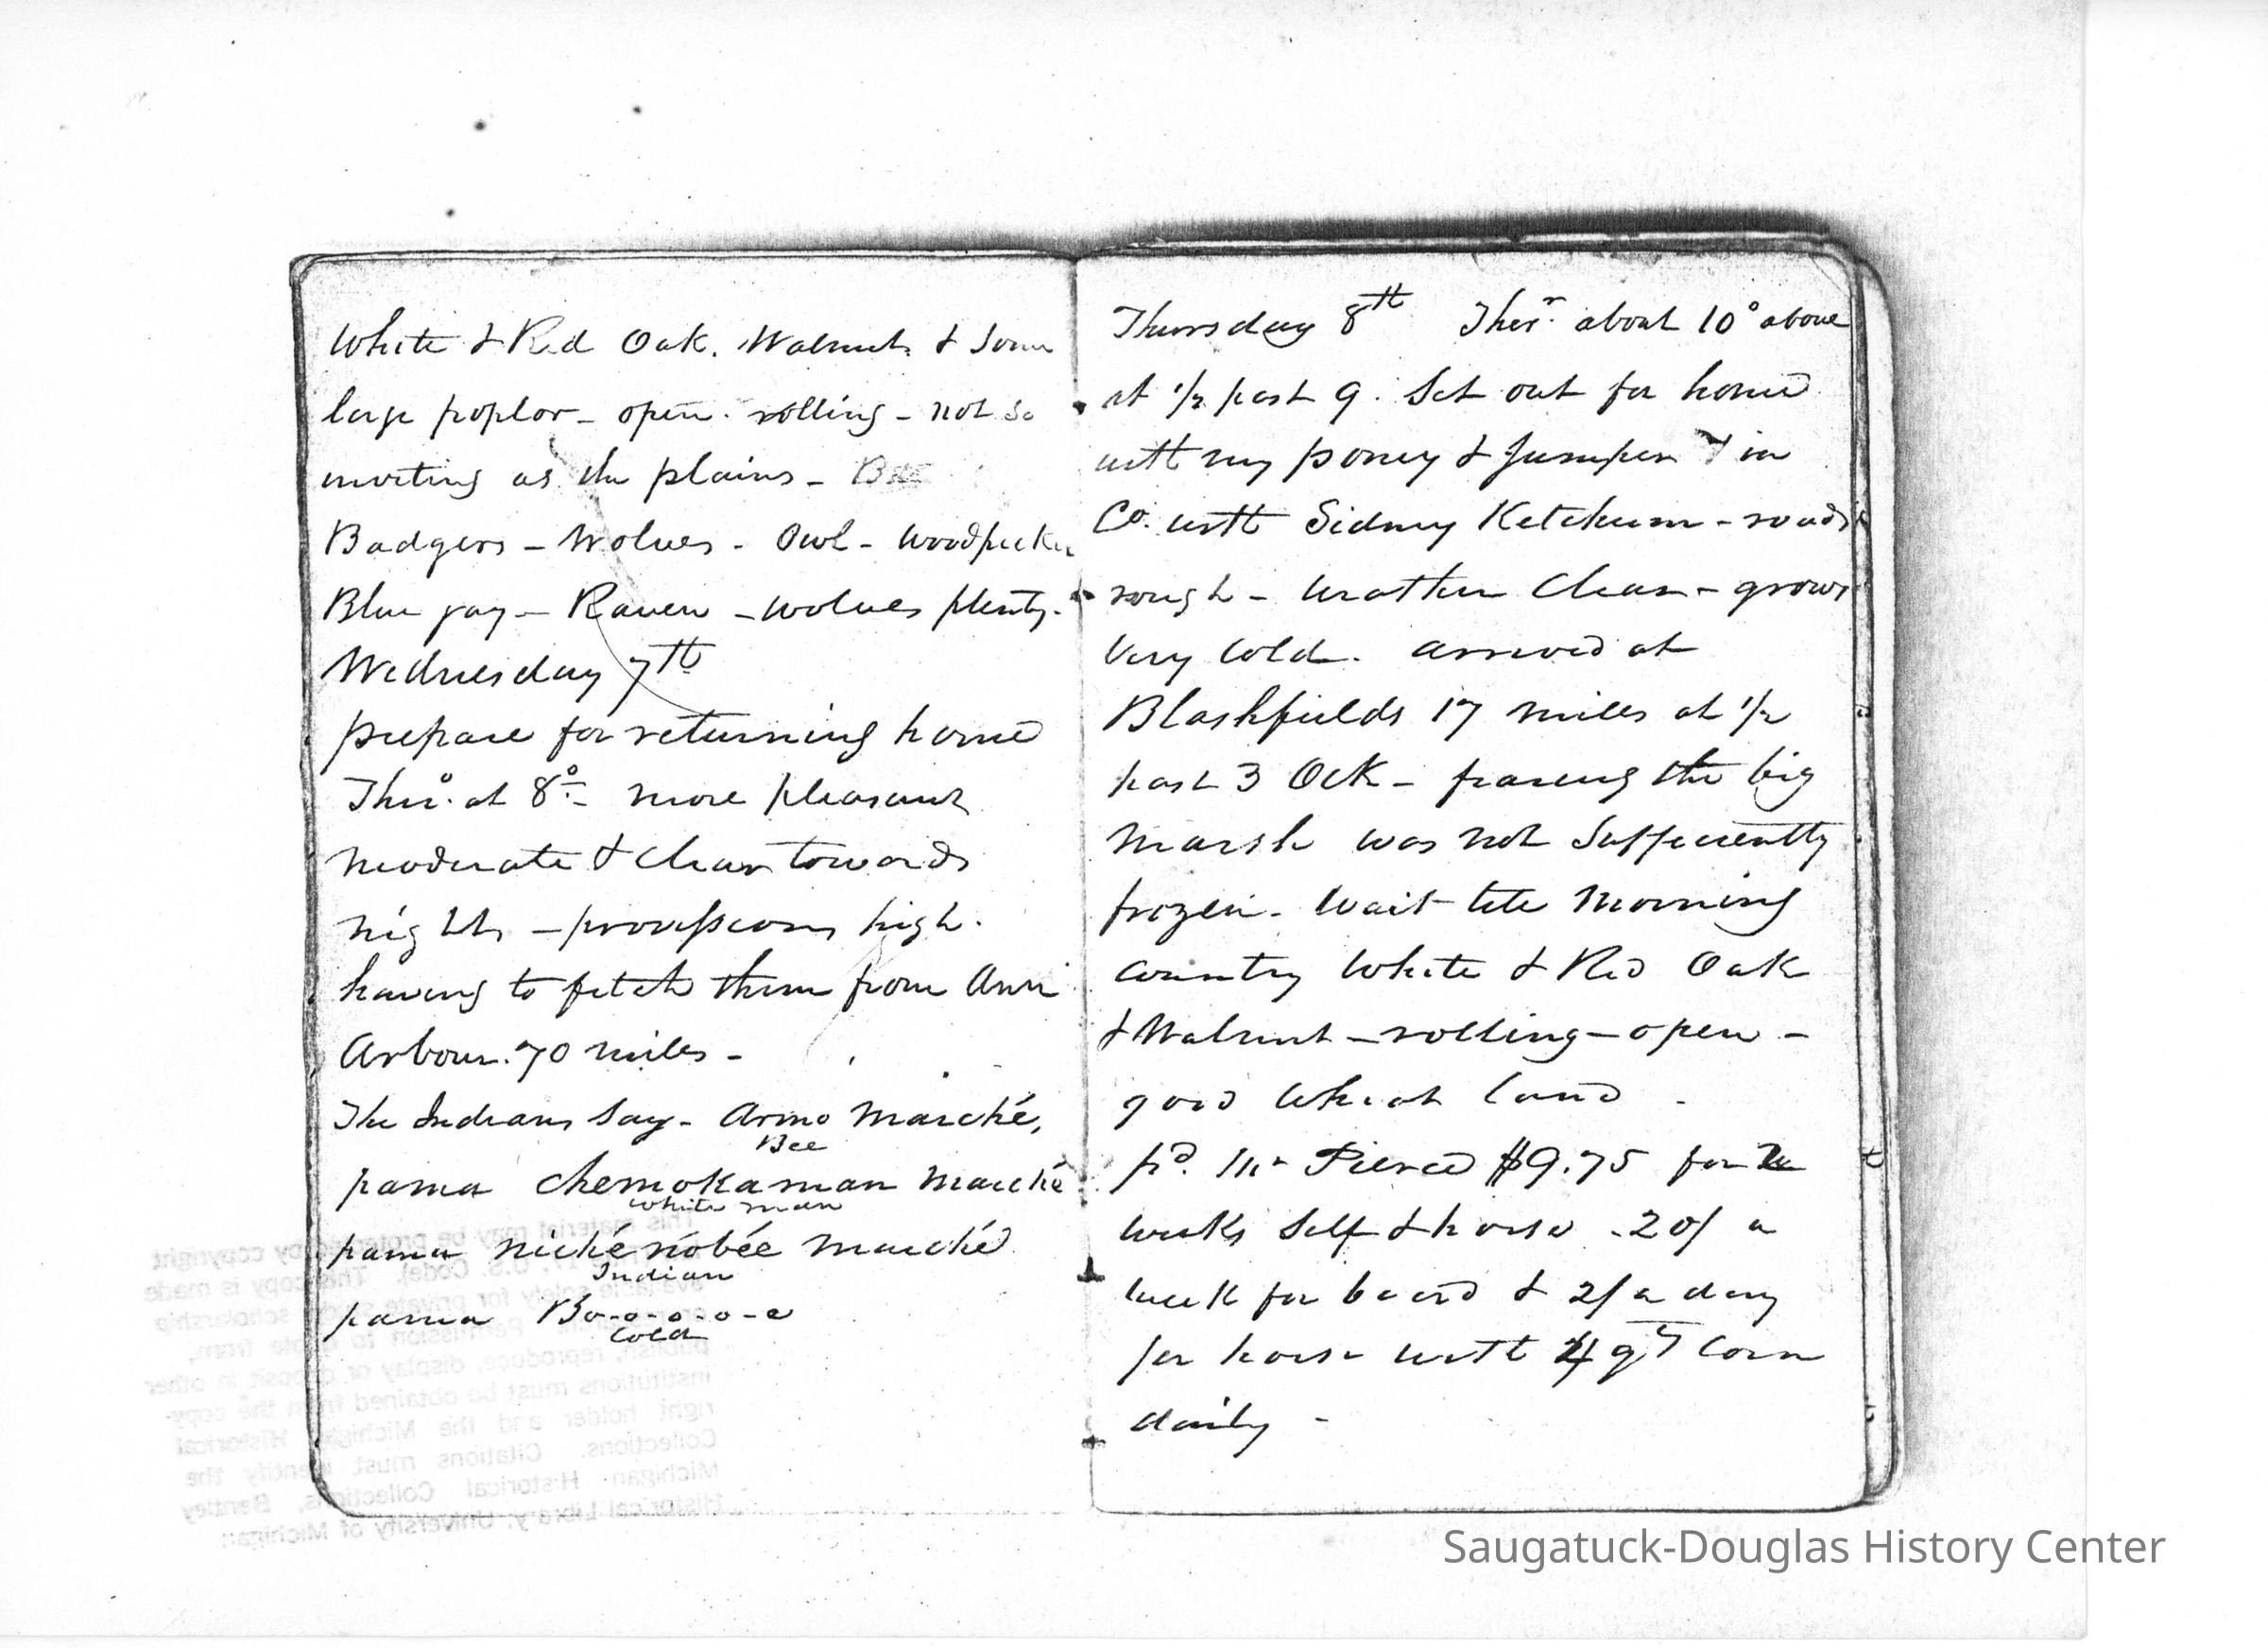 White & Red Oak. Walnut & some
large poplar - open - rolling - not so
inviting as the plains -
Badgers - Wolves - Owl - Woodpecker
Blue jay - Raven - wolves plenty.
Wednesday 7th
prepare for returning home
Ther. at 8° - more pleasant
moderate & clear towards
night - provisions high.
having to fetch them from Ann
Arbour. 70 miles -
The Indians say - Armo Marché,
Bee
pama chemokaman Marché
White man
pama nichénobée Marché
Indian
pama Bo-o-o-o-o
Cold
Thursday 8th Ther. about 10° above
at 1/2 past 9. Set out for home
with my poney & Jumper & in
Co. with Sidney Ketchum - roads
rough - weather clear - grows
very cold. arrived at
Blashfields 17 miles at 1/2
past 3 OCk - passing the big
marsh was not sufficiently
frozen - Wait till morning
Country White & Red Oak
& Walnut - rolling - open -
good Wheat land -
pd. Mr Pierce $9.75 for
weeks self & horse - 20/ a
week for board & 2/ a day
for horse with 4 qts Corn
daily -
This material may be protected by copyright
law (Title 17, U.S. Code). This copy is made
available solely for private study, scholarship
or research. Permission to quote from,
publish, reproduce, display or deposit in other
institutions must be obtained from the copy-
right holder and the Michigan Historical
Collections. Citations must identify the
Michigan Historical Collections, Bentley
Historical Library, University of Michigan.
Saugatuck-Douglas History Center